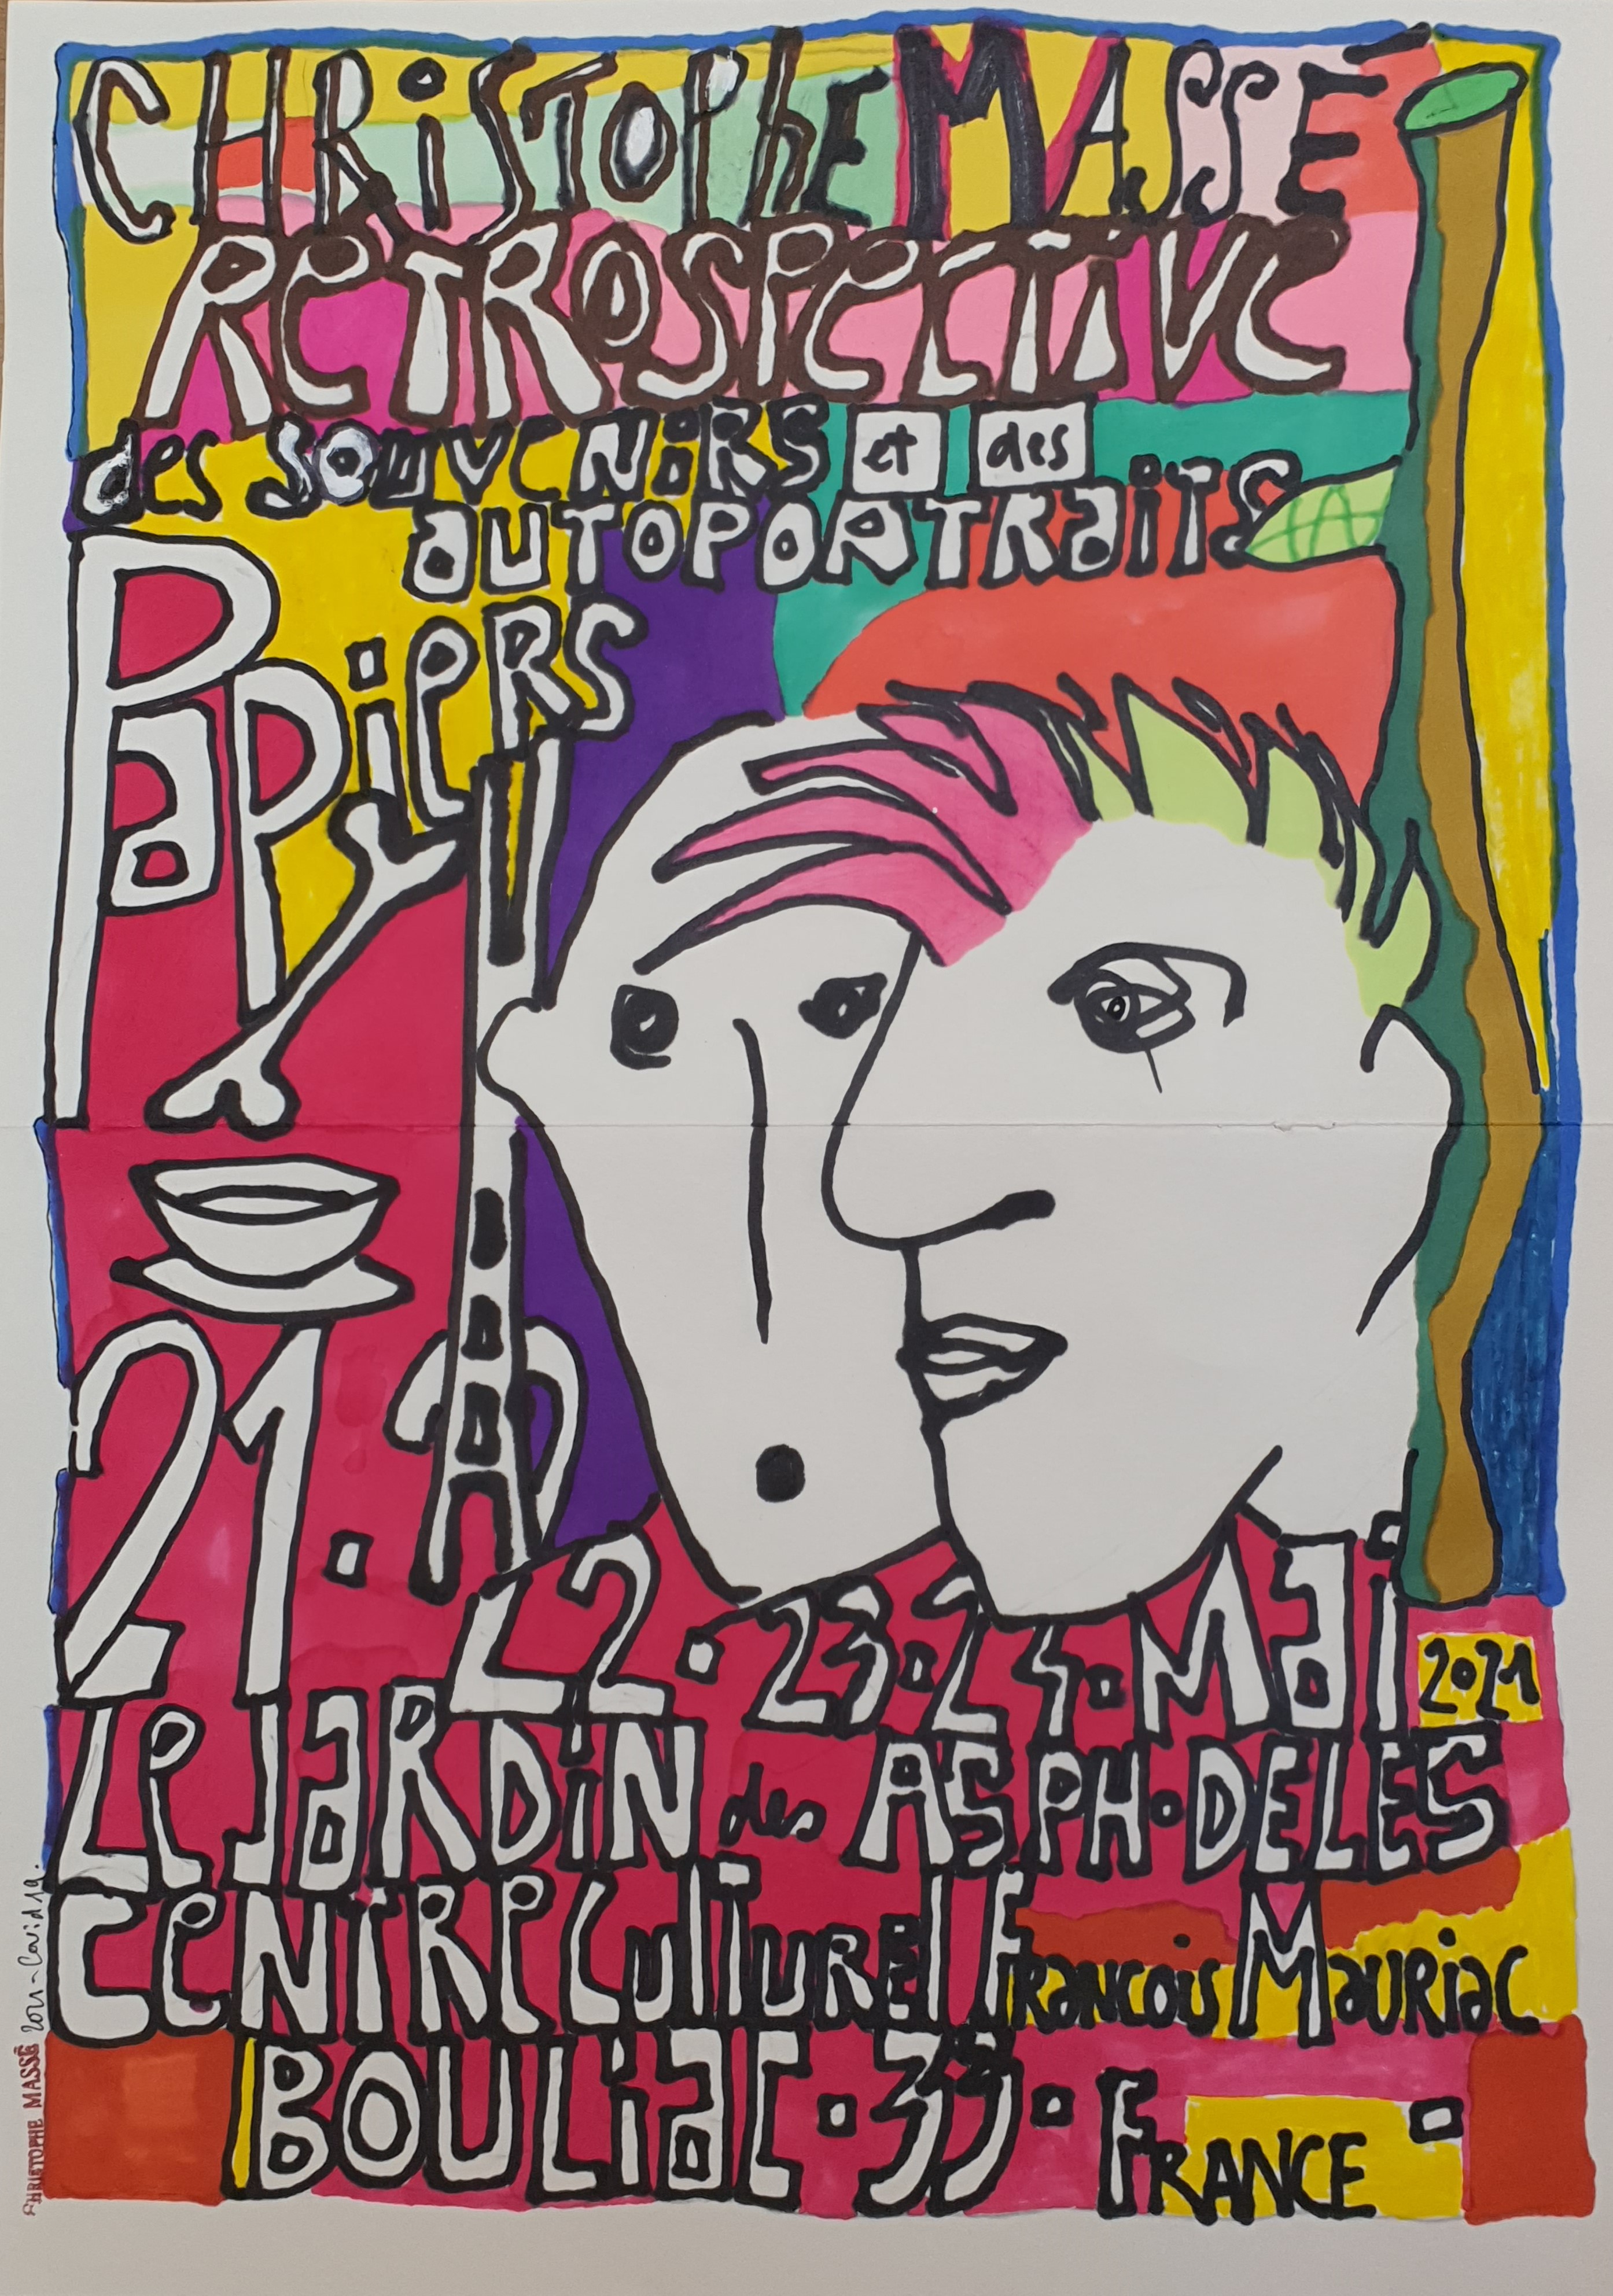 CHRiSTOPhE MASSÉ
RETROSPECTiVE
des SOUVENiRS et des
AUTOPORTRaiTS
PaPiERS
21. 22. 23. 24. Mai 2021
LE JaRDiN des ASPHODELES
CENTRE CulTUREl FRaNCOiS MaURiaC
BOULiaC. 33. FRANCE.
CHRISTOPHE MASSÉ 2021 - Covid 19.